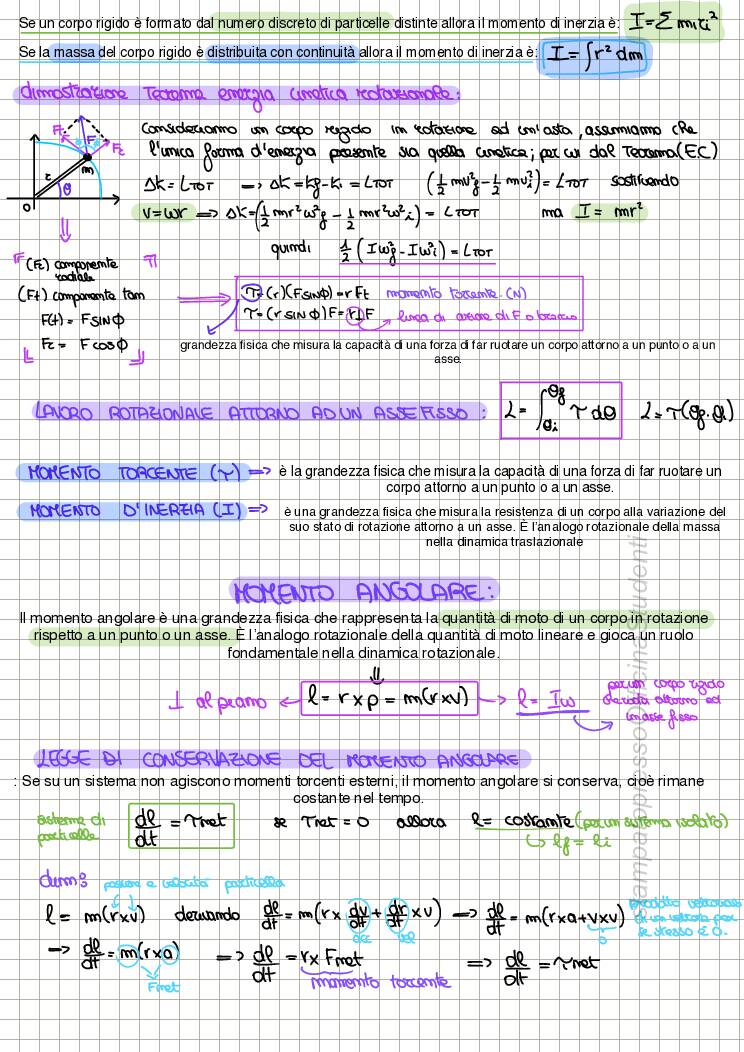 Se un corpo rigido è formato dal numero discreto di particelle distinte allora il momento di inerzia è: I = Σ mᵢrᵢ²
Se la massa del corpo rigido è distribuita con continuità allora il momento di inerzia è: I = ∫ r² dm
dimostrazione Teorema energia cinetica rotazionale:
Consideriamo un corpo rigido in rotazione ad un'asta, assumiamo che
l'unica forma d'energia presente sia quella cinetica; per cui dal Teorema (EC)
Fr F Ft m r θ O
ΔK = LTOT => ΔK = Kf - Ki = LTOT (1/2 mv²f - 1/2 mv²i) = LTOT sostituendo
v = ωr => ΔK = (1/2 mr²ω²f - 1/2 mr²ω²i) = LTOT ma I = mr²
quindi 1/2 (Iω²f - Iω²i) = LTOT
(Fr) componente
radiale
(Ft) componente tan
F(t) = F sinϕ
Fr = F cosϕ
τ = (r)(F sinϕ) = r Ft momento torcente. (N)
τ = (r sinϕ) F = r⊥F linea di azione di F o braccio
grandezza fisica che misura la capacità di una forza di far ruotare un corpo attorno a un punto o a un
asse.
LAVORO ROTAZIONALE ATTORNO AD UN ASSE FISSO: L = ∫θiθf τ dθ L = τ(θf - θi)
MOMENTO TORCENTE (τ) => è la grandezza fisica che misura la capacità di una forza di far ruotare un
corpo attorno a un punto o a un asse.
MOMENTO D'INERZIA (I) => è una grandezza fisica che misura la resistenza di un corpo alla variazione del
suo stato di rotazione attorno a un asse. È l'analogo rotazionale della massa
nella dinamica traslazionale
MOMENTO ANGOLARE:
Il momento angolare è una grandezza fisica che rappresenta la quantità di moto di un corpo in rotazione
rispetto a un punto o un asse. È l'analogo rotazionale della quantità di moto lineare e gioca un ruolo
fondamentale nella dinamica rotazionale.
⊥ al piano ← l = r × p = m(r×v) → l = Iω
per un corpo rigido
che ruota attorno ad
un asse fisso
LEGGE DI CONSERVAZIONE DEL MOMENTO ANGOLARE
: Se su un sistema non agiscono momenti torcenti esterni, il momento angolare si conserva, cioè rimane
costante nel tempo.
sistema di
particelle
dl/dt = τnet se τnet = 0 allora l = costante (per un sistema isolato)
lf = li
dim: posizione e velocità particella
l = m(r×v) derivando dl/dt = m(r × dv/dt + dr/dt × v) => dl/dt = m(r×a + v×v)
acc vel 0
prodotto vettoriale
di un vettore per
se stesso è 0.
=> dl/dt = m(r×a) => dl/dt = r × Fnet => dl/dt = τnet
Fnet momento torcente